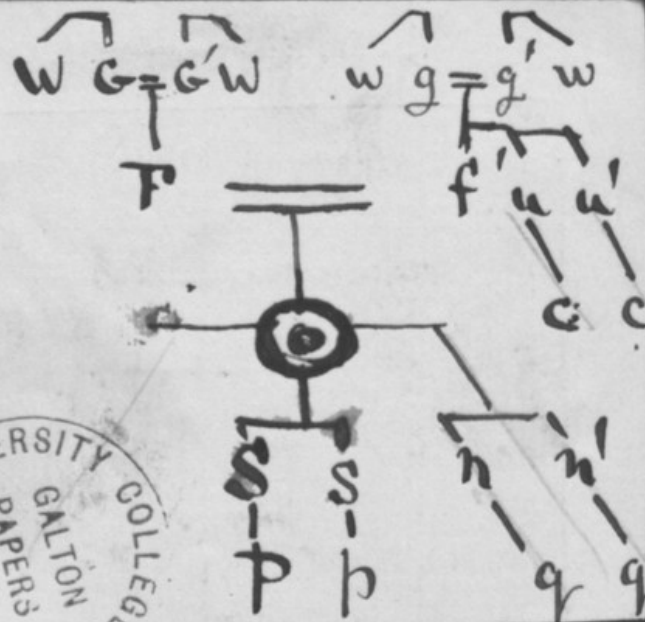 W G = G' W w g = g' w
F f' u u'
c c
S s n n'
P p q q
ERSITY COLLEG
GALTON
PAPERS